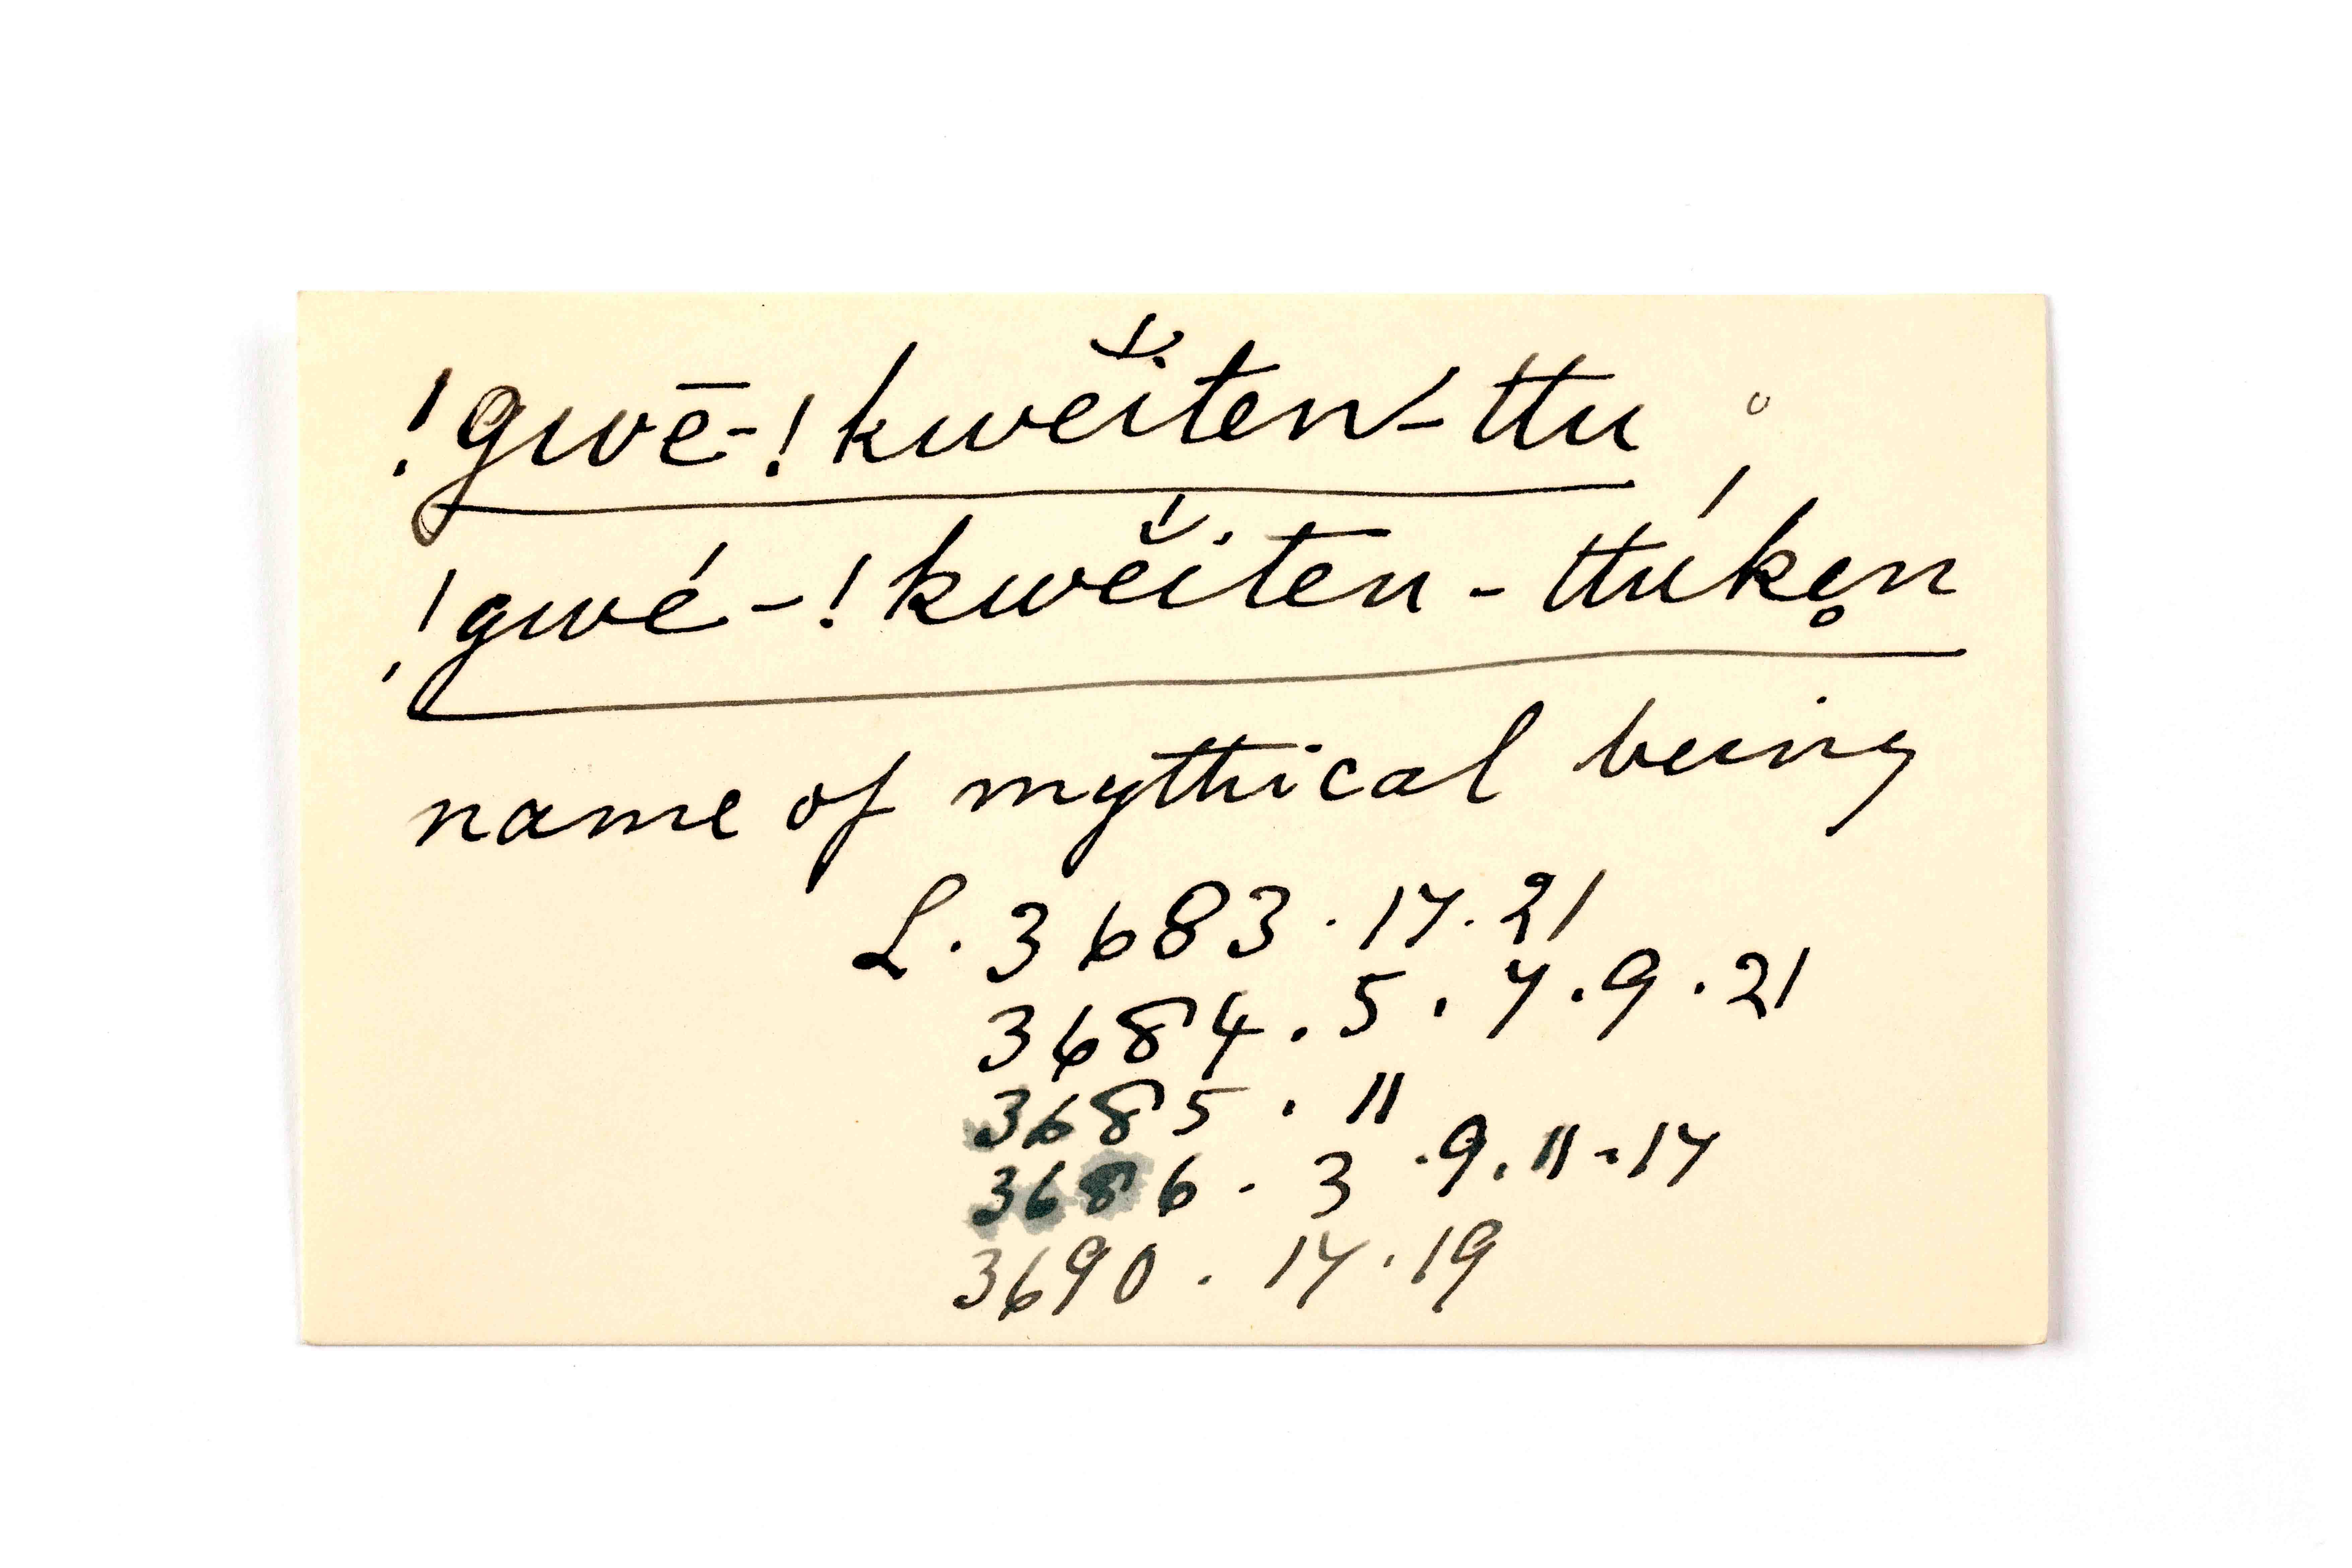 !gwē-!kwĕ́iten-́ttu ;
!gwé-!kwĕ́iten-ttúke̥n
name of mythical being
L. 3683 . 17 . 21
3684 . 5 . 7 . 9 . 21
3685 . 11
3686 . 3 . 9 . 11 - 17
3690 . 17 . 19